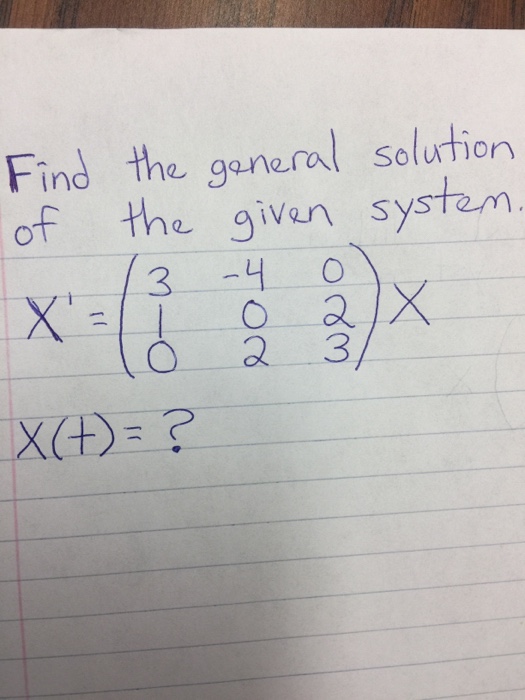 Find the general solution
of the given system.
X' = ( 3 -4 0
1 0 2
0 2 3 ) X
X(t) = ?